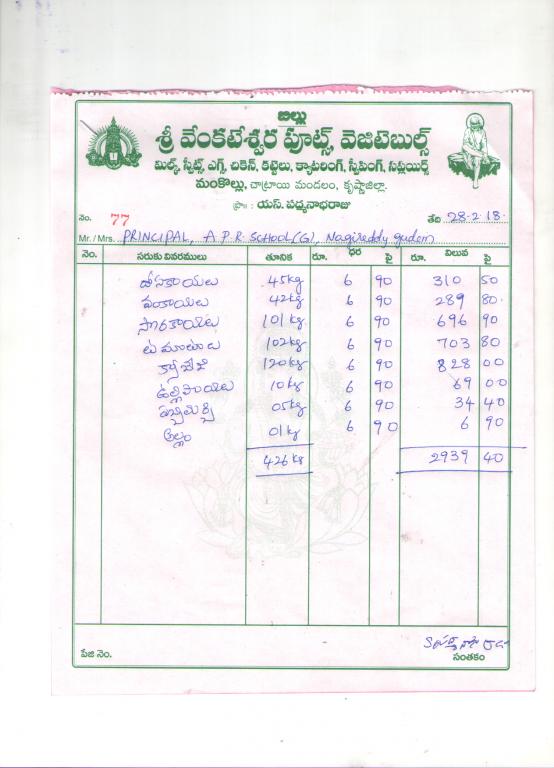 బిల్లు
శ్రీ వేంకటేశ్వర ఫ్రూట్స్, వెజిటెబుల్స్
మిల్క్, స్వీట్స్, ఎగ్స్, చికెన్, కట్టెలు, క్యాటరింగ్, స్వీపింగ్, సప్లయర్స్
మంకొల్లు, చాట్రాయి మండలం, కృష్ణాజిల్లా.
ప్రొ॥ : యస్. పద్మనాభరాజు
నెం. 77 తేది 28.2.18.
Mr./Mrs. PRINCIPAL, A.P.R. SCHOOL(G), Nagireddy gudem
నెం. సరుకు వివరములు తూనిక రూ. ధర పై రూ. విలువ పై
దోసకాయలు 45kg 6 90 310 50
వంకాయలు 42kg 6 90 289 80
సొరకాయలు 101 kg 6 90 696 90
టమాటాలు 102kg 6 90 703 80
క్యాబేజి 120kg 6 90 828 00
ఉల్లిపాయలు 10kg 6 90 69 00
పచ్చిమిర్చి 05kg 6 90 34 40
అల్లం 01kg 6 90 6 90
426 kg 2939 40
పేజి నెం. సంతకం